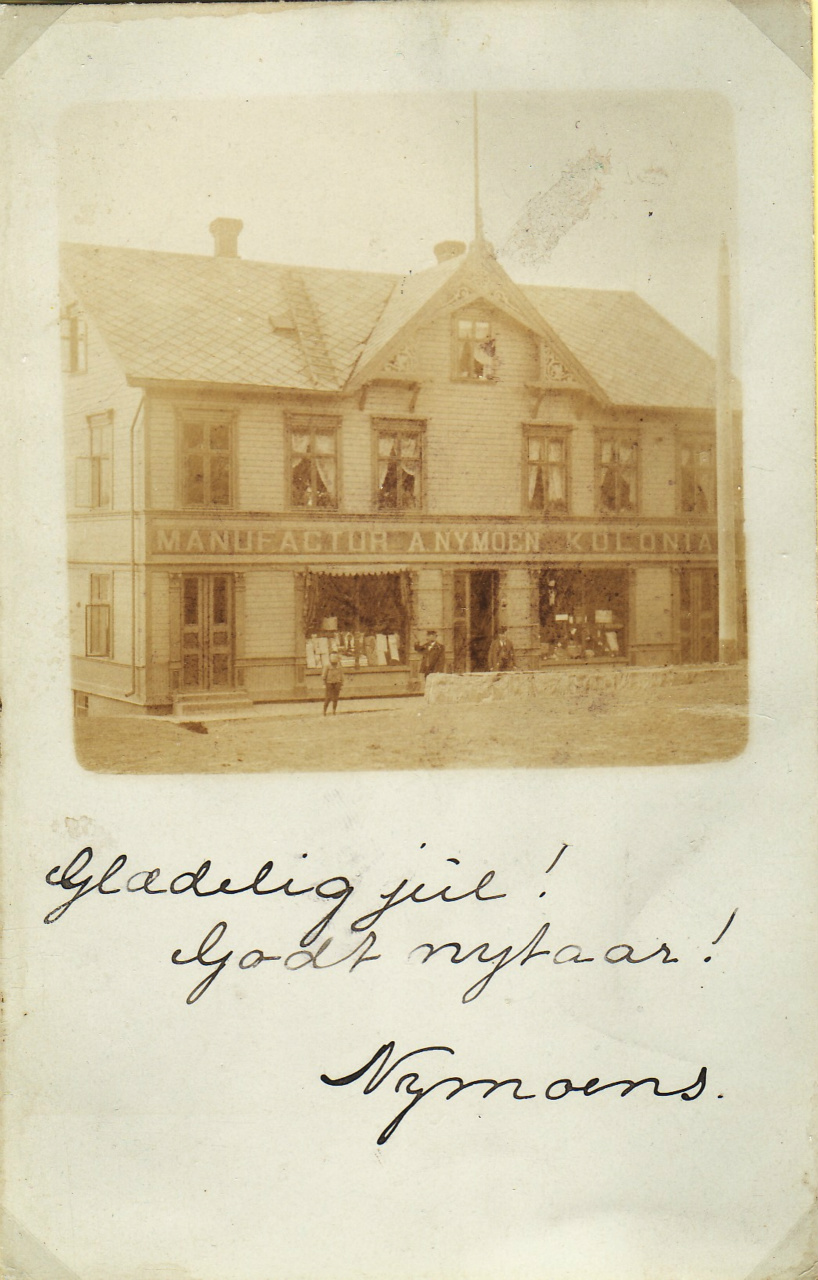 MANUFACTUR A NYMOEN KOLONIA
Glædelig jul!
Godt nytaar!
Nymoens.